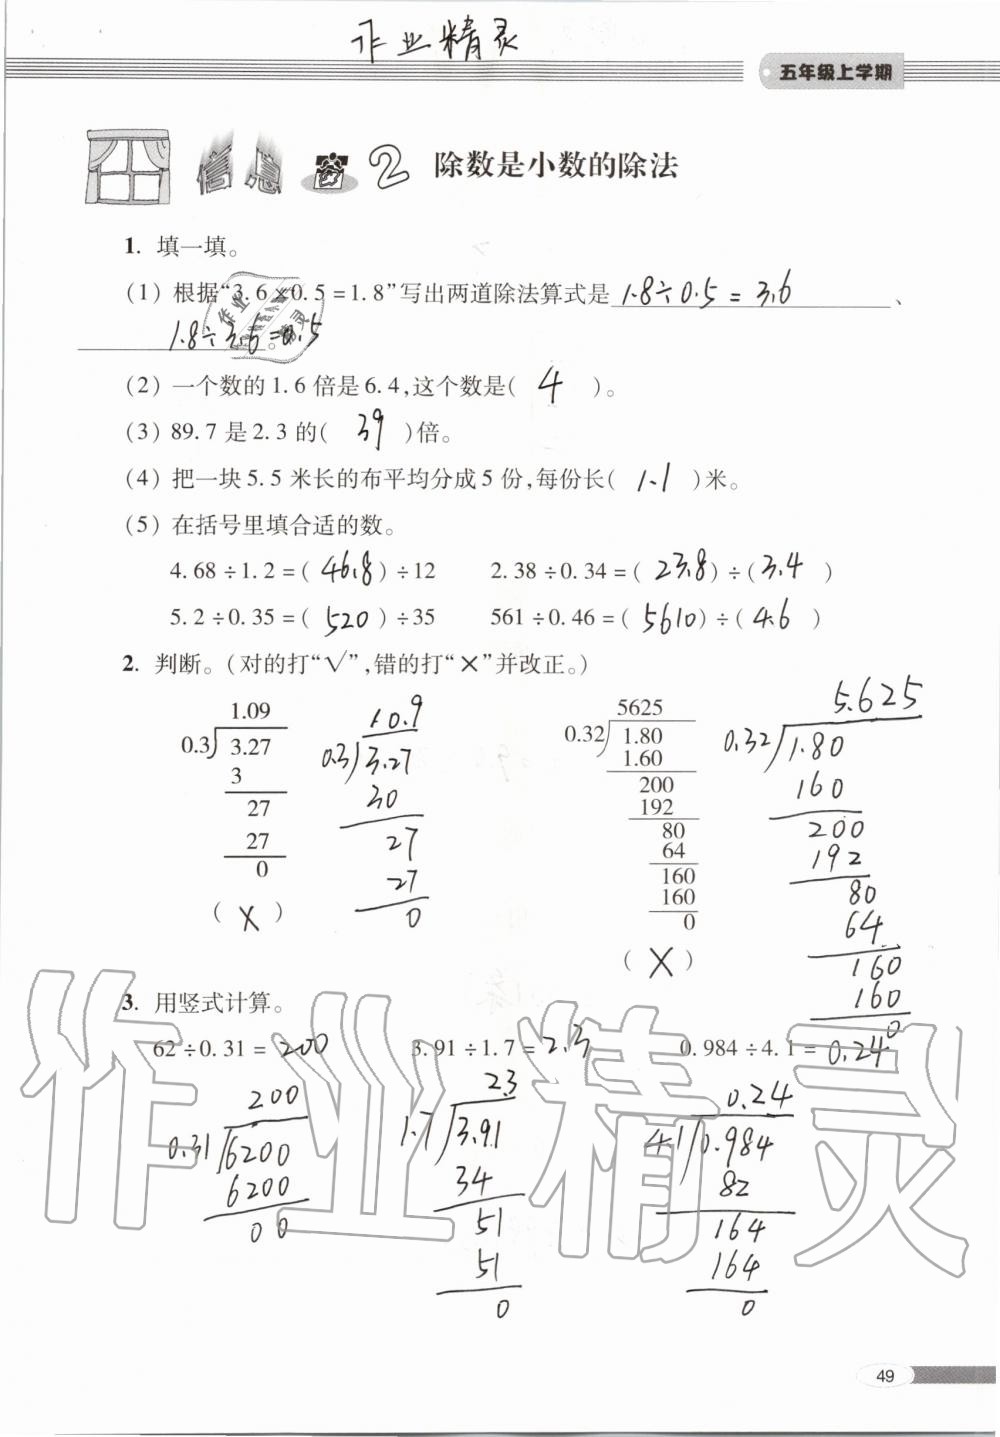 作业精灵
五年级上学期
信息窗2 除数是小数的除法
1. 填一填。
(1) 根据“3.6×0.5=1.8”写出两道除法算式是 1.8÷0.5=3.6 、
1.8÷3.6=0.5 。
(2) 一个数的1.6倍是6.4,这个数是( 4 )。
(3) 89.7是2.3的( 39 )倍。
(4) 把一块5.5米长的布平均分成5份,每份长( 1.1 )米。
(5) 在括号里填合适的数。
4.68÷1.2=( 46.8 )÷12 2.38÷0.34=( 23.8 )÷( 3.4 )
5.2÷0.35=( 520 )÷35 561÷0.46=( 5610 )÷( 4.6 )
2. 判断。(对的打“√”,错的打“×”并改正。)
1.09
0.3 3.27
3
27
27
0
( × )
10.9
0.3 3.27
30
27
27
0
5625
0.32 1.80
1.60
200
192
80
64
160
160
0
( × )
5.625
0.32 1.80
160
200
192
80
64
160
160
0
3. 用竖式计算。
62÷0.31= 200 3.91÷1.7= 2.3 0.984÷4.1= 0.24
200
0.31 6200
6200
00
2.3
1.7 3.91
34
51
51
0
0.24
4.1 0.984
82
164
164
0
作业精灵
49